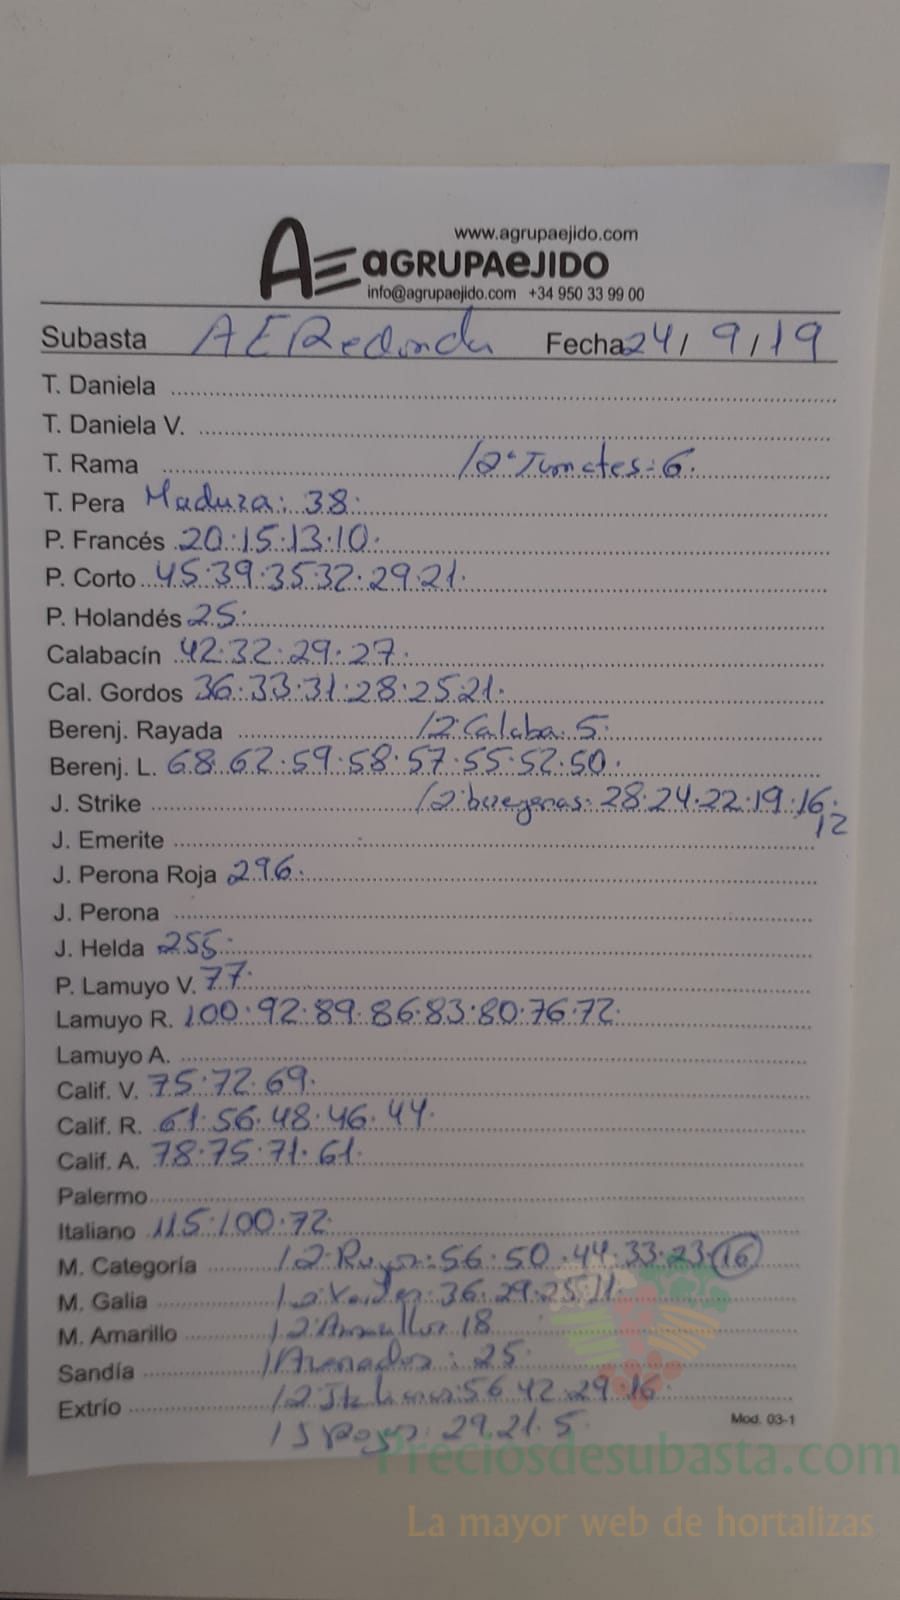 www.agrupaejido.com
AE aGRUPAeJIDO
info@agrupaejido.com +34 950 33 99 00
Subasta AERedonda Fecha 24/9/19
T. Daniela
T. Daniela V.
T. Rama /2ª Tomates: 6.
T. Pera Madura: 38.
P. Francés 20.15.13.10.
P. Corto 45.39.35.32.29.21.
P. Holandés 25.
Calabacín 42.32.29.27.
Cal. Gordos 36.33.31.28.25.21.
Berenj. Rayada /2ª Calaba. 5.
Berenj. L. 68.62.59.58.57.55.52.50.
J. Strike /2ª beregenas: 28.24.22.19.16.
12
J. Emerite
J. Perona Roja 296.
J. Perona
J. Helda 255.
P. Lamuyo V. 77.
Lamuyo R. 100.92.89.86.83.80.76.72.
Lamuyo A.
Calif. V. 75.72.69.
Calif. R. 61.56.48.46.44.
Calif. A. 78.75.71.61.
Palermo
Italiano 115.100.72.
M. Categoría /2ª Rojos: 56.50.44.33.23.16
M. Galia /2ª Verdes: 36.29.25.11.
M. Amarillo /2ª Amarillos 18
Sandía : 25.
Extrío /2ª Italianos: 56.42.29.16.
29.21.5.
Mod. 03-1
Preciosdesubasta.com
La mayor web de hortalizas